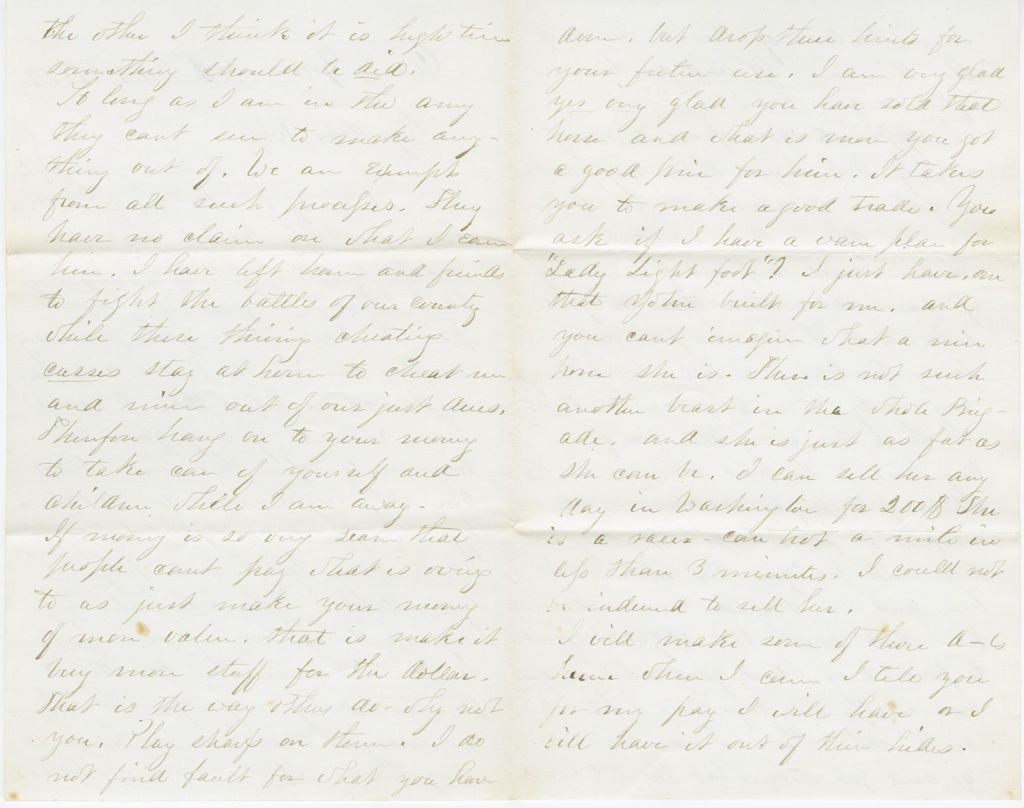 the other I think it is high time
something should be did.
So long as I am in the army
they cant seem to make any-
thing out of. We are Exempt
from all such processes. They
have no claim on what I earn
here. I have left home and friends
to fight the battles of our country
while these thieving cheating
cusses stay at home to cheat me
and mine out of our just dues.
Therefore hang on to your money
to take care of yourself and
children while I am away.
If money is so very scarce that
people cant pay what is owing
to us just make your money
of more value. that is make it
buy more stuff for the dollar.
that is the way others do - why not
you. Play sharps on them. I do
not find fault for what you have
done. but drop these hints for
your future use. I am very glad
yes very glad you have sold that
horse and what is more you got
a good price for him. It takes
you to make a good trade. You
ask if I have a warm place for
"Lady Light foot"? I just have. one
that was built for me. and
you cant imagine what a nice
horse she is. There is not such
another beast in the whole Brig-
ade. and she is just as fat as
she can be. I can sell her any
day in Washington for 200$ She
is a racer - can trot a mile in
less than 3 minutes. I could not
be induced to sell her.
I will make some of those
when I come I tell you
for my pay I will have or I
will have it out of their hides.